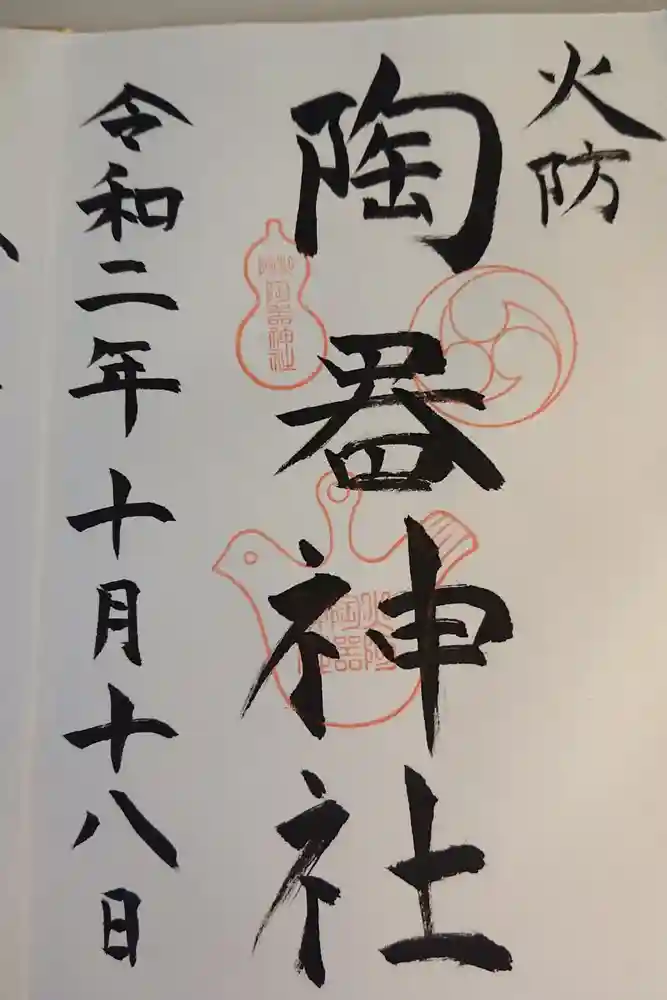 火防
陶器神社
令和二年十月十八日
陶器神社
火防
陶器